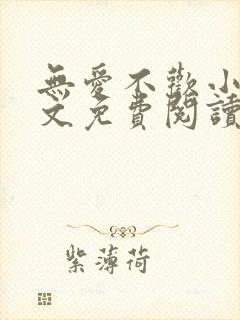 無愛不歡小
文免費閱讀
紫薄荷